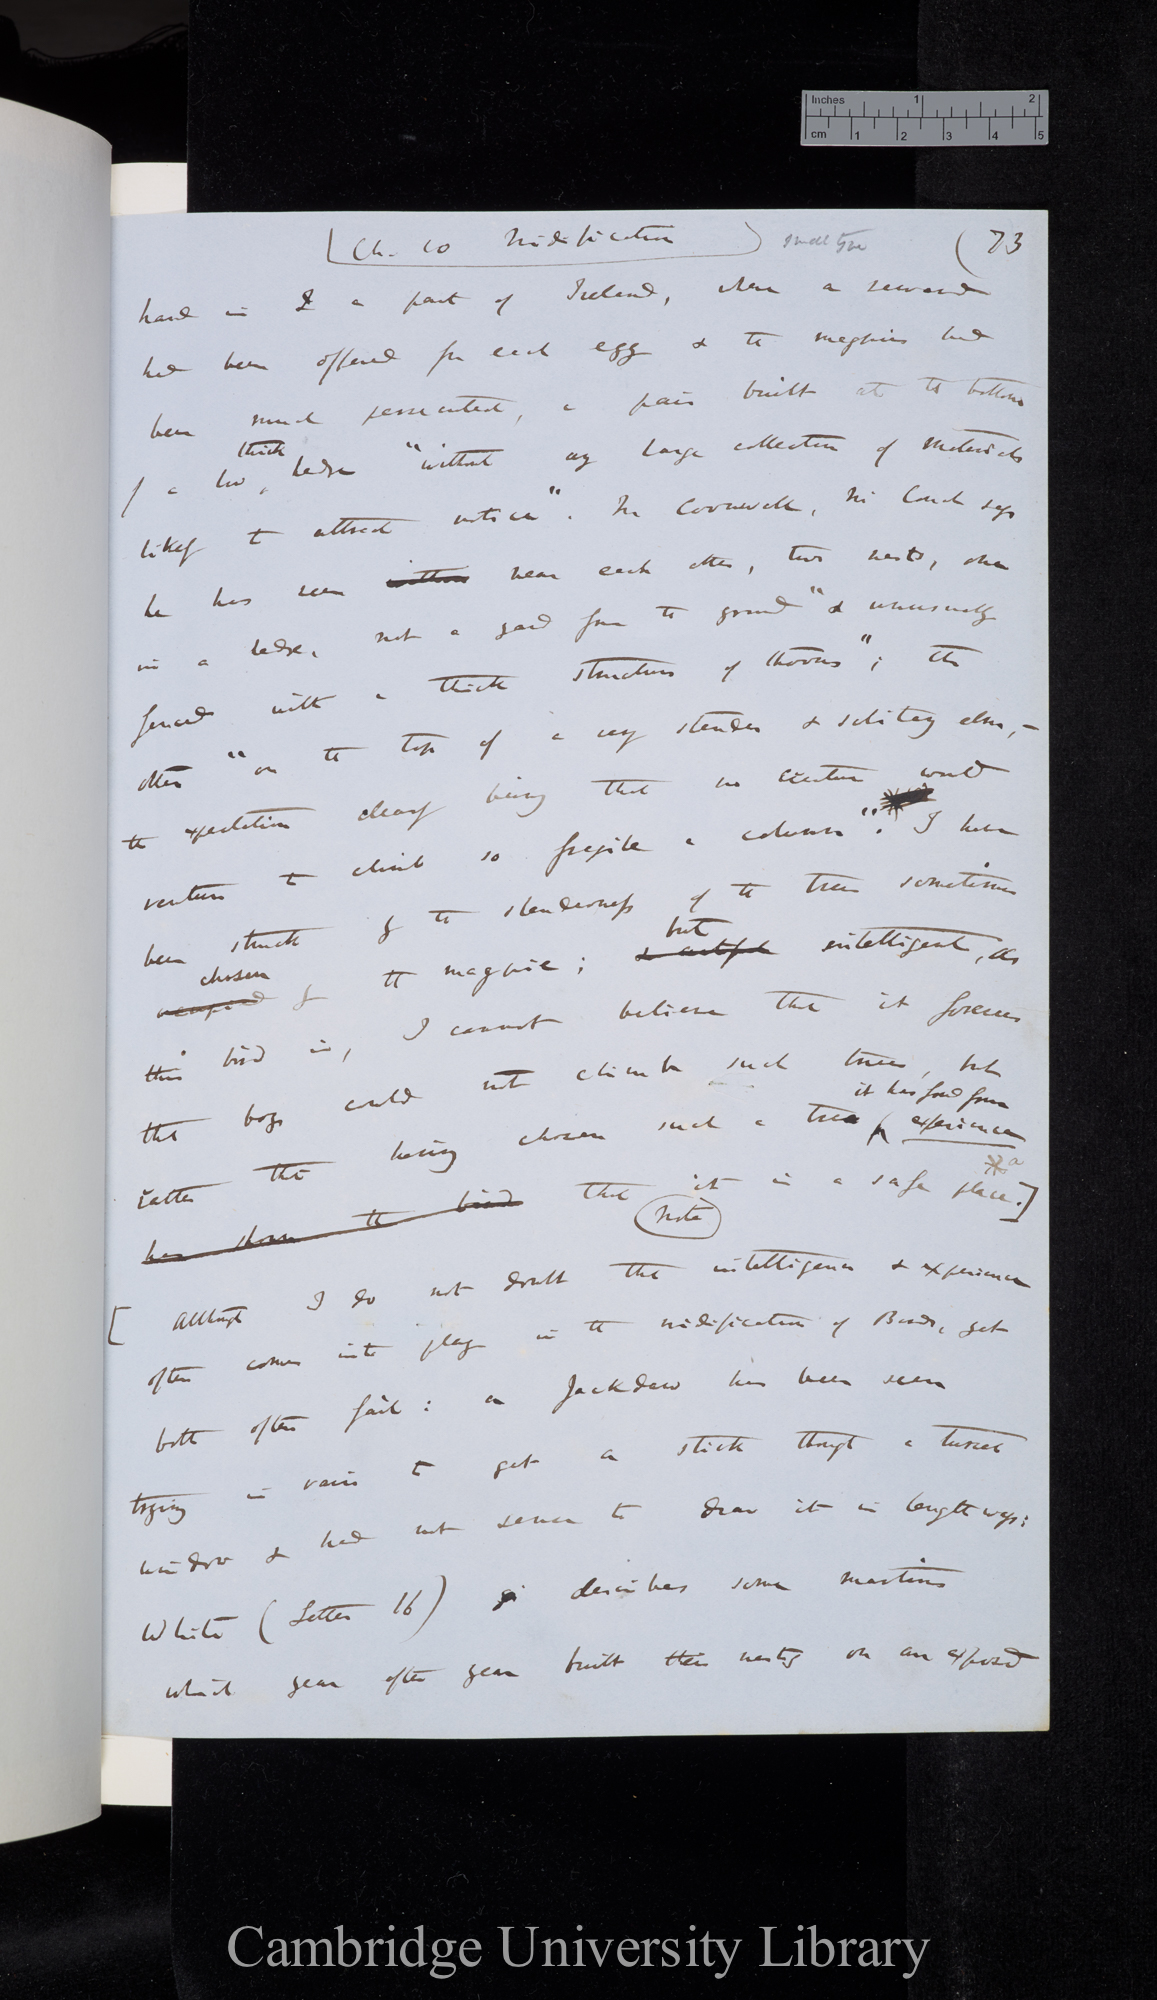 Inches 1 2
cm 1 2 3 4 5
Ch. 10 Nidification small type (73
hand in I a part of Ireland, where a reward
had been offered for each egg & the magpies had
been much persecuted, a pair built at the bottom
thick
of a low, hedge "without any large collection of materials
likely to attract notice". In Cornwall, Mr Couch says
he has seen near each other, two nests, one
in a hedge, not a yard from the ground "& unusually
fenced with a thick structure of thorns"; the
other "on the top of a very slender & solitary elm,—
the expectation clearly being that no creature would
venture to climb so fragile a column". I have
been struck by the slenderness of the trees sometimes
chosen but
occupied by the magpie; & artful intelligent, as
this bird is, I cannot believe that it foresees
that boys could not climb such trees, but
it has found from
rather that having chosen such a tree experience
has shown the bird that it is a safe place.]
a
Note
[Although I do not doubt that intelligence & experience
often comes into play in the nidification of Birds, yet
both often fail: a Jackdaw has been seen
trying in vain to get a stick through a turret
window & had not sense to draw it in lengthways:
White (Letter 16) describes some martins
which year after year built their nests on an exposed
Cambridge University Library